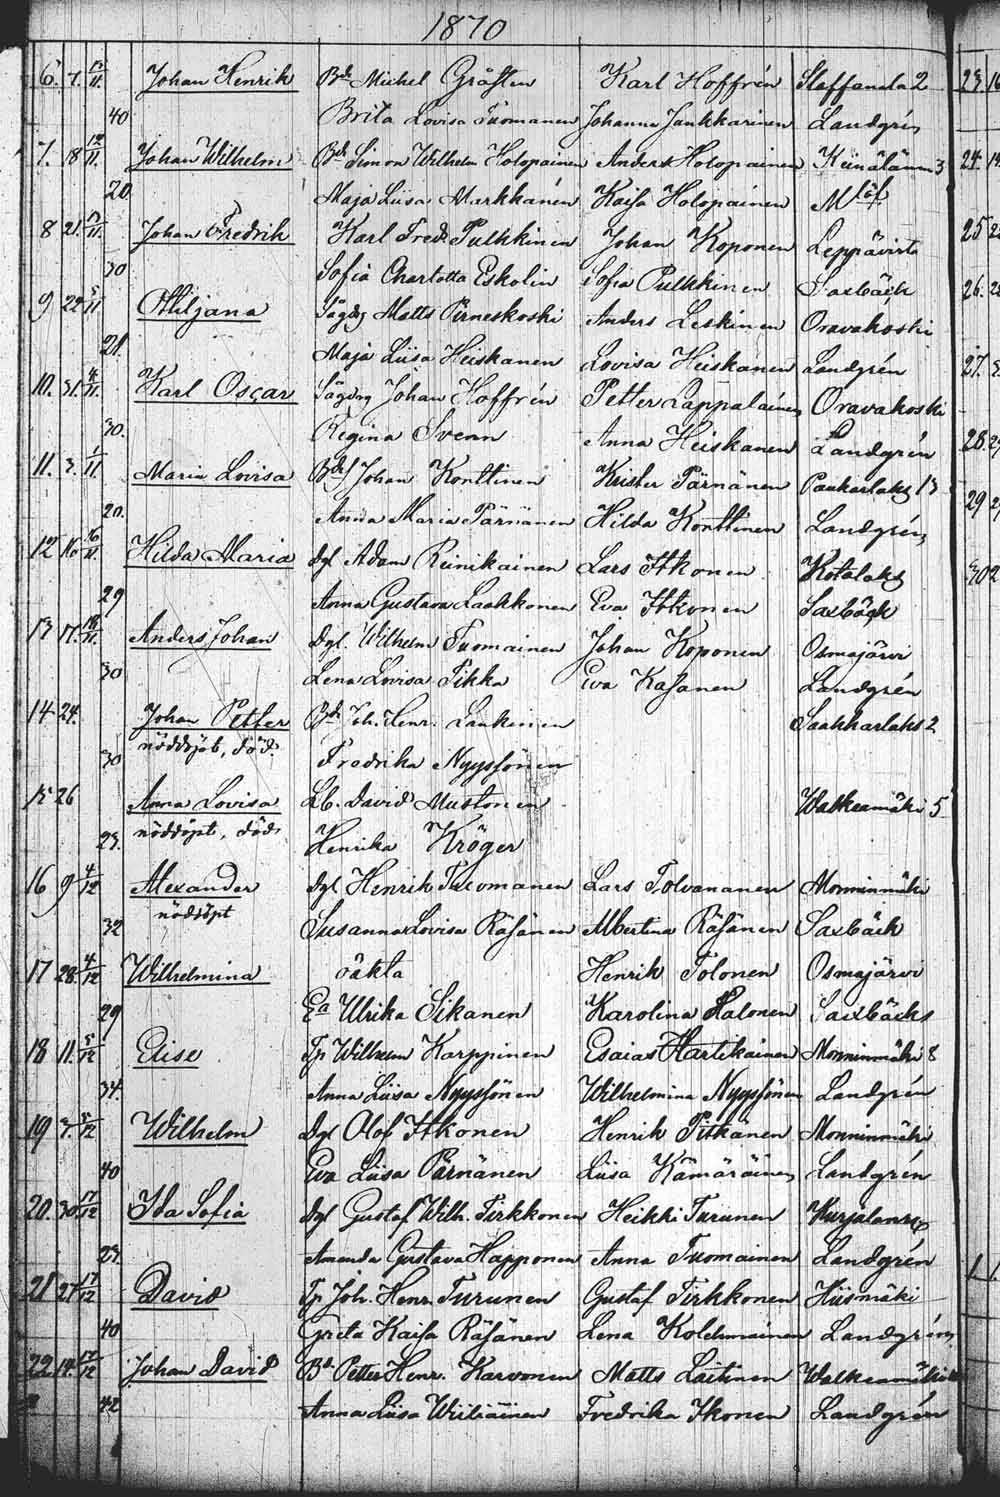 1870
6. 7. 13/11. Johan Henrik Bd. Michel Gråsten Karl Hoffrén Staffansla 2
40 Brita Lovisa Tuomanen Johanna Jankkarinen Landgrén
7. 18 12/11. Johan Wilhelm Bd. Simon Wilhelm Holopainen Anders Holopainen 3
20. Maja Liisa Markkanén Kaisa Holopainen
8 21. 13/11. Johan Fredrik Karl Fred. Pulkkinen Johan Koponen Leppävirta
30 Sofia Charlotta Eskolin Sofia Pulkkinen Saxbäck
9 22 5/11 Ottiljana Sågdrg Matts Pirneskoski Anders Leskinen Oravakoski
21. Maja Liisa Heiskanen Lovisa Heiskanen Landgrén
10. 31. 4/11. Karl Oscar Sågdrg Johan Hoffrén Petter Lappalainen Oravakoski
30. Regina Svenn Anna Heiskanen Landgrén
11. 3. 1/11. Maria Lovisa Johan Konttinen Krister Pärnänen Paukarlaks 13
20. Anna Maria Pärnänen Hilda Konttinen Landgrén
12 16 16/11. Hilda Maria dgl Adam Reinikainen Lars Itkonen Kotalaks
29 Anna Gustava Laakkonen Eva Itkonen Saxbäck
13 17. 18/11. Anders Johan dgl. Wilhelm Tuomainen Johan Koponen Osmajärvi
30 Lena Lovisa Pikka Eva Kasanen Landgrén
14 24. Johan Petter Bd. Joh. Henr. Laukinen Saahkarlaks 2
nöddöpt, död.
30 Fredrika Nyyssönen
15 26 Anna Lovisa Lb. David Mustonen Walkeamäki 5
nöddöpt, död
23. Henrika Kröger
16 9 4/12 Alexander dgl Henrik Tuomanen Lars Tolvananen Monninmäki
nöddöpt
32 Susanna Lovisa Räsänen Albertina Räsänen Saxbäck
17 28. 4/12 Wilhelmina oäkta Henrik Tolonen Osmajärvi
29 Ea Ulrika Sikanen Karolina Halonen Saxbäck
18 11. 5/12 Elise Tp Wilhelm Karppinen Esaias Hartikainen Monninmäki 8
34. Anna Liisa Nyyssönen Wilhelmina Nyyssönen Landgrén
19 7. 5/12 Wilhelm dgl Olof Itkonen Henrik Pitkänen Monninmäki
40 Eva Liisa Pärnänen Liisa Kämäräinen Landgrén
20. 30 17/12 Ida Sofia dgl Gustaf Wilh. Tirkkonen Heikki Turunen Kurjalanra
23. Amanda Gustava Happonen Anna Tuomainen Landgrén
21 27 17/12 David Tp Joh. Henr. Turunen Gustaf Tirkkonen Hiismäki
40 Greta Kaisa Räsänen Lena Kolehmainen Landgrén
22. 14. 17/12 Johan David Bd. Petter Henr. Karvonen Matts Laitinen Walkeamäki
42 Anna Liisa Wiiliäinen Fredrika Ikonen Landgrén